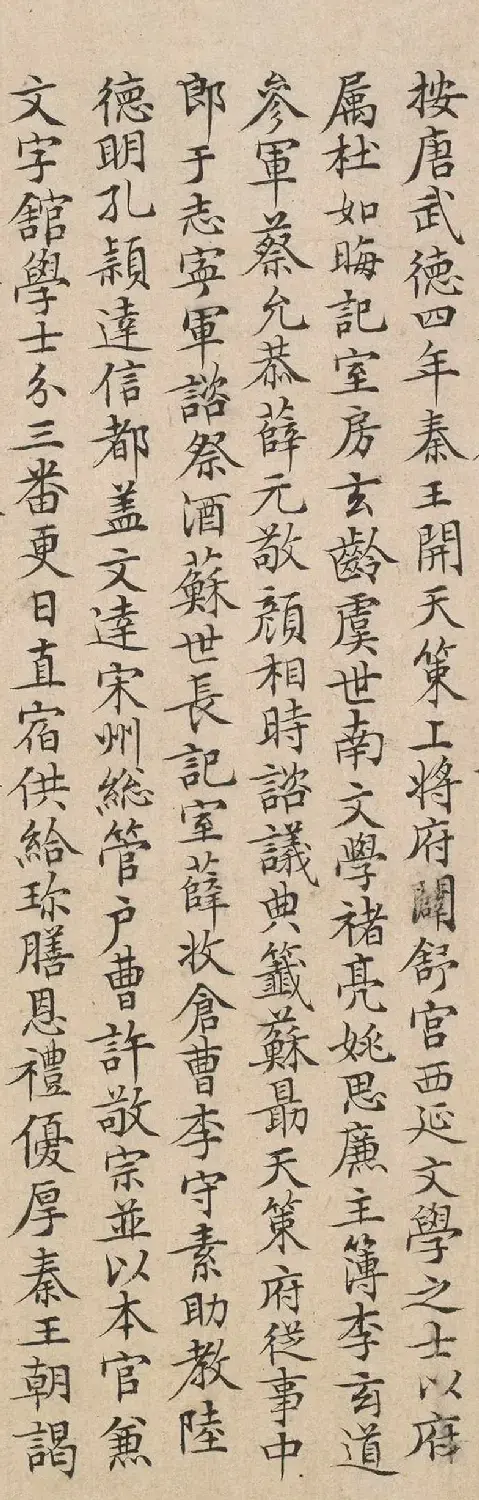 按唐武德四年秦王開天策上将府闢舒宫西延文學之士以府
属杜如晦記室房玄齡虞世南文學褚亮姚思廉主簿李玄道
參軍蔡允恭薛元敬顔相時諮議典籤蘇勗天策府從事中
郎于志寧軍諮祭酒蘇世長記室薛收倉曹李守素助教陸
德明孔穎達信都盖文達宋州総管户曹許敬宗並以本官兼
文字舘學士分三番更日直宿供給珎膳恩禮優厚秦王朝謁